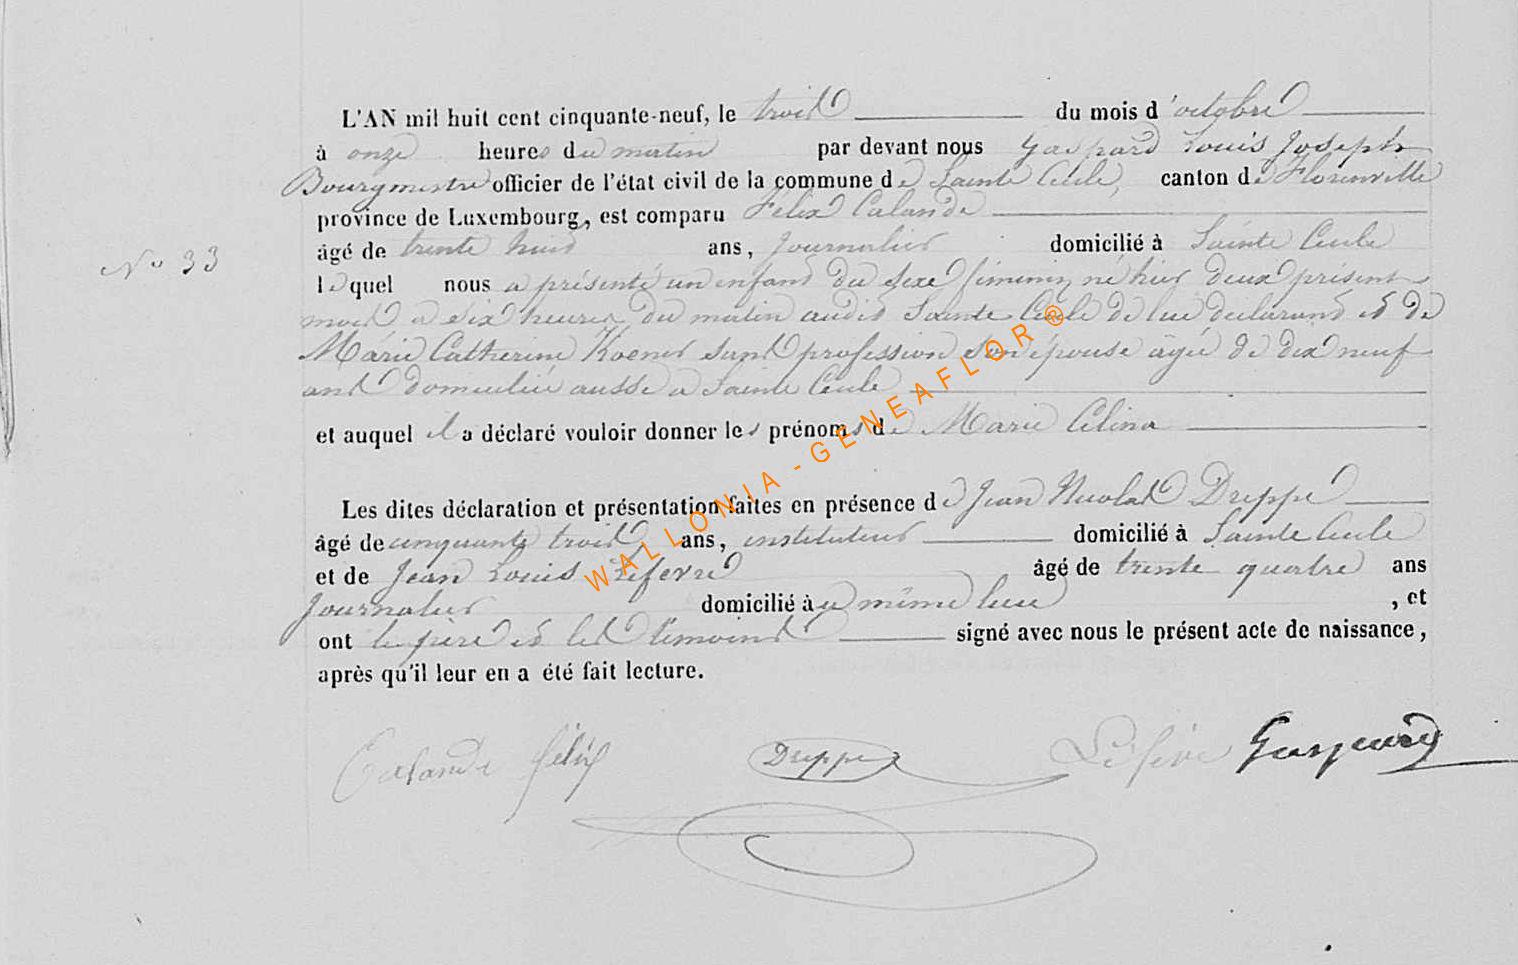 L'AN mil huit cent cinquante-neuf, le trois du mois d'octobre
à onze heures du matin par devant nous Gaspard Louis Joseph
Bourgmestre officier de l'état civil de la commune de Sainte Cecile, canton de Florenville
province de Luxembourg, est comparu Félix Calande
âgé de trente huit ans, Journalier domicilié à Sainte Cecile
N° 33
lequel nous a présenté un enfant du sexe féminin né hier deux présent
mois a six heures du matin audit Sainte Cecile de lui declarant et de
Marie Catherine Koener sans profession son épouse agée de dix neuf
ans domiciliée aussi a Sainte Cecile
et auquel il a déclaré vouloir donner les prénoms de Marie Célina
Les dites déclaration et présentation faites en présence de Jean Nicolas Dreppe
âgé de cinquante trois ans, instituteur domicilié à Sainte Cecile
et de Jean Louis Lefevre âgé de trente quatre ans
Journalier domicilié à u même lieu , et
ont le père et les témoins signé avec nous le présent acte de naissance,
après qu'il leur en a été fait lecture.
Calande félix Dreppe Léfèvre Gaspard
WALLONIA - GENEAFLOR ®